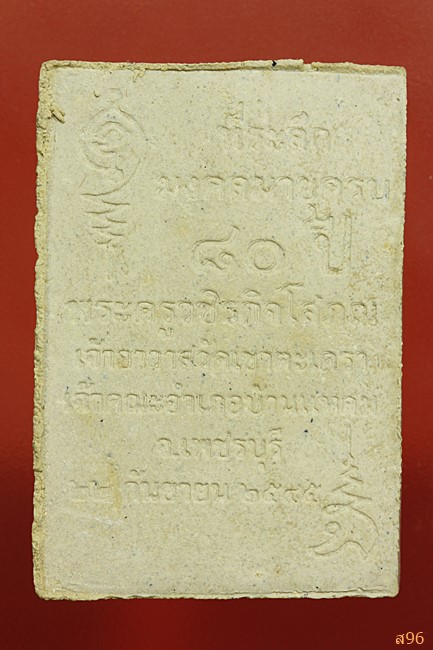 ที่ระลึก
มงคลมายุครบ
๘๐ ปี
พระครูวชิรกิตโสภณ
เจ้าอาวาสวัดเขาตะเครา
เจ้าคณะอำเภอบ้านแหลม
จ.เพชรบุรี
๒๒ กันยายน ๒๕๔๕
ส96